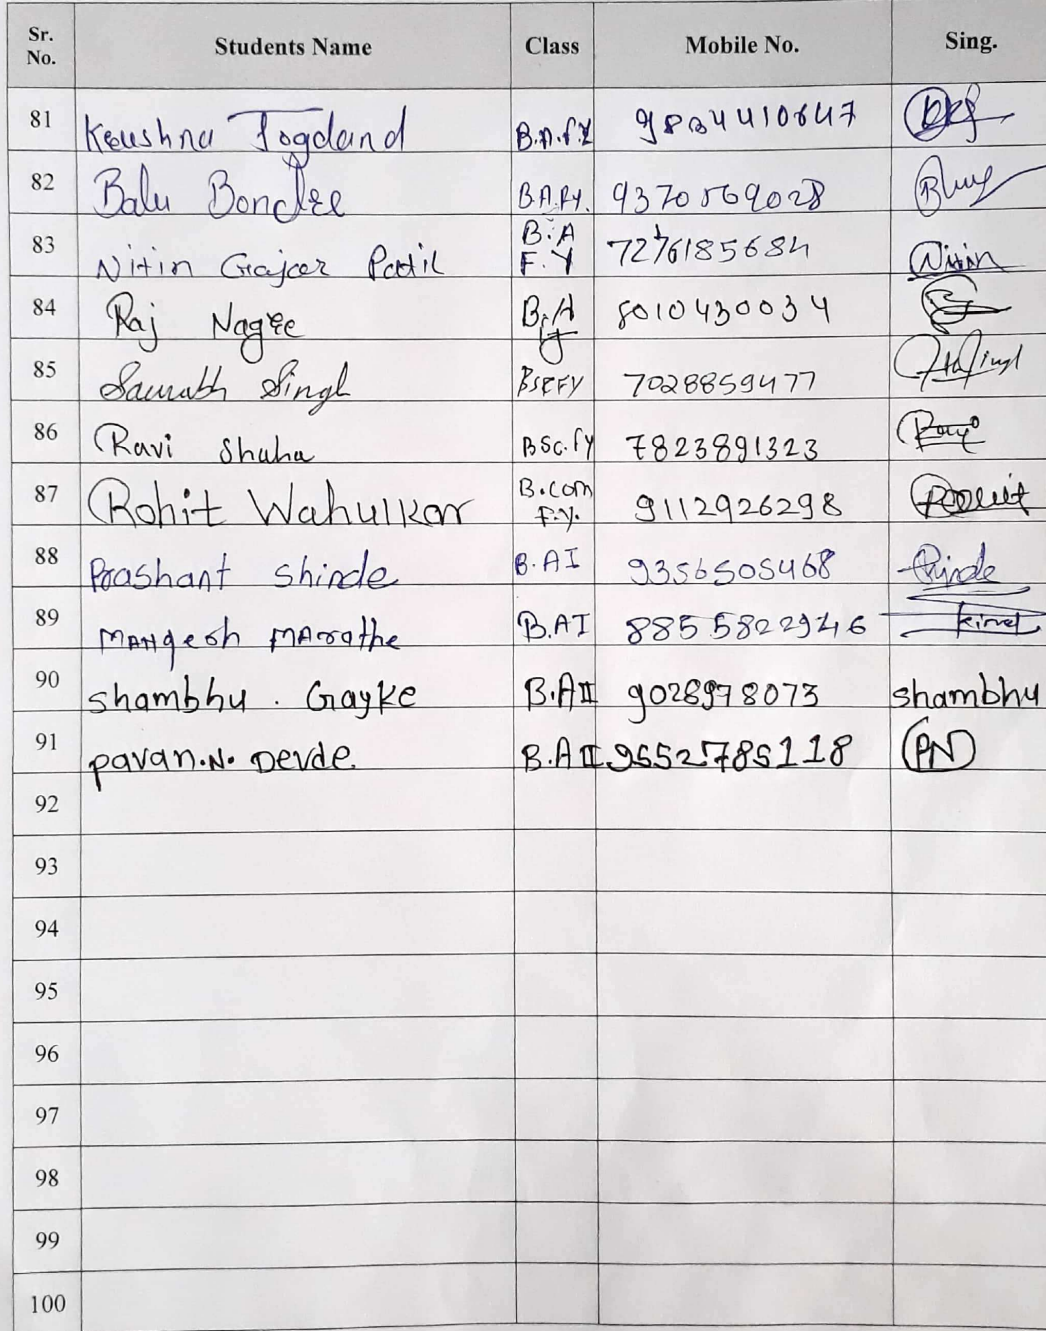 Sr. No. Students Name Class Mobile No. Sing.
81 Keushna Jogdand B.A.F.Y 9834410647
82 Balu B.A.FY. 9370569028
83 Nitin Gajar Patil B.A F.Y 7276185684 Nitin
84 Raj Nagre B.A 8010430034
85 Saurabh Singh BSCFY 7028859477
86 Ravi Shaha BSC.fy 7823891323
87 Rohit Wahulkar B.com F.Y. 9112926298
88 Prashant shinde B.AI 9356505468
89 MANgesh MArathe B.AI 8855822946
90 shambhu. Gayke B.AII 9028978073 shambhu
91 pavan.N. Devde B.AII 9552785118 PN
92
93
94
95
96
97
98
99
100